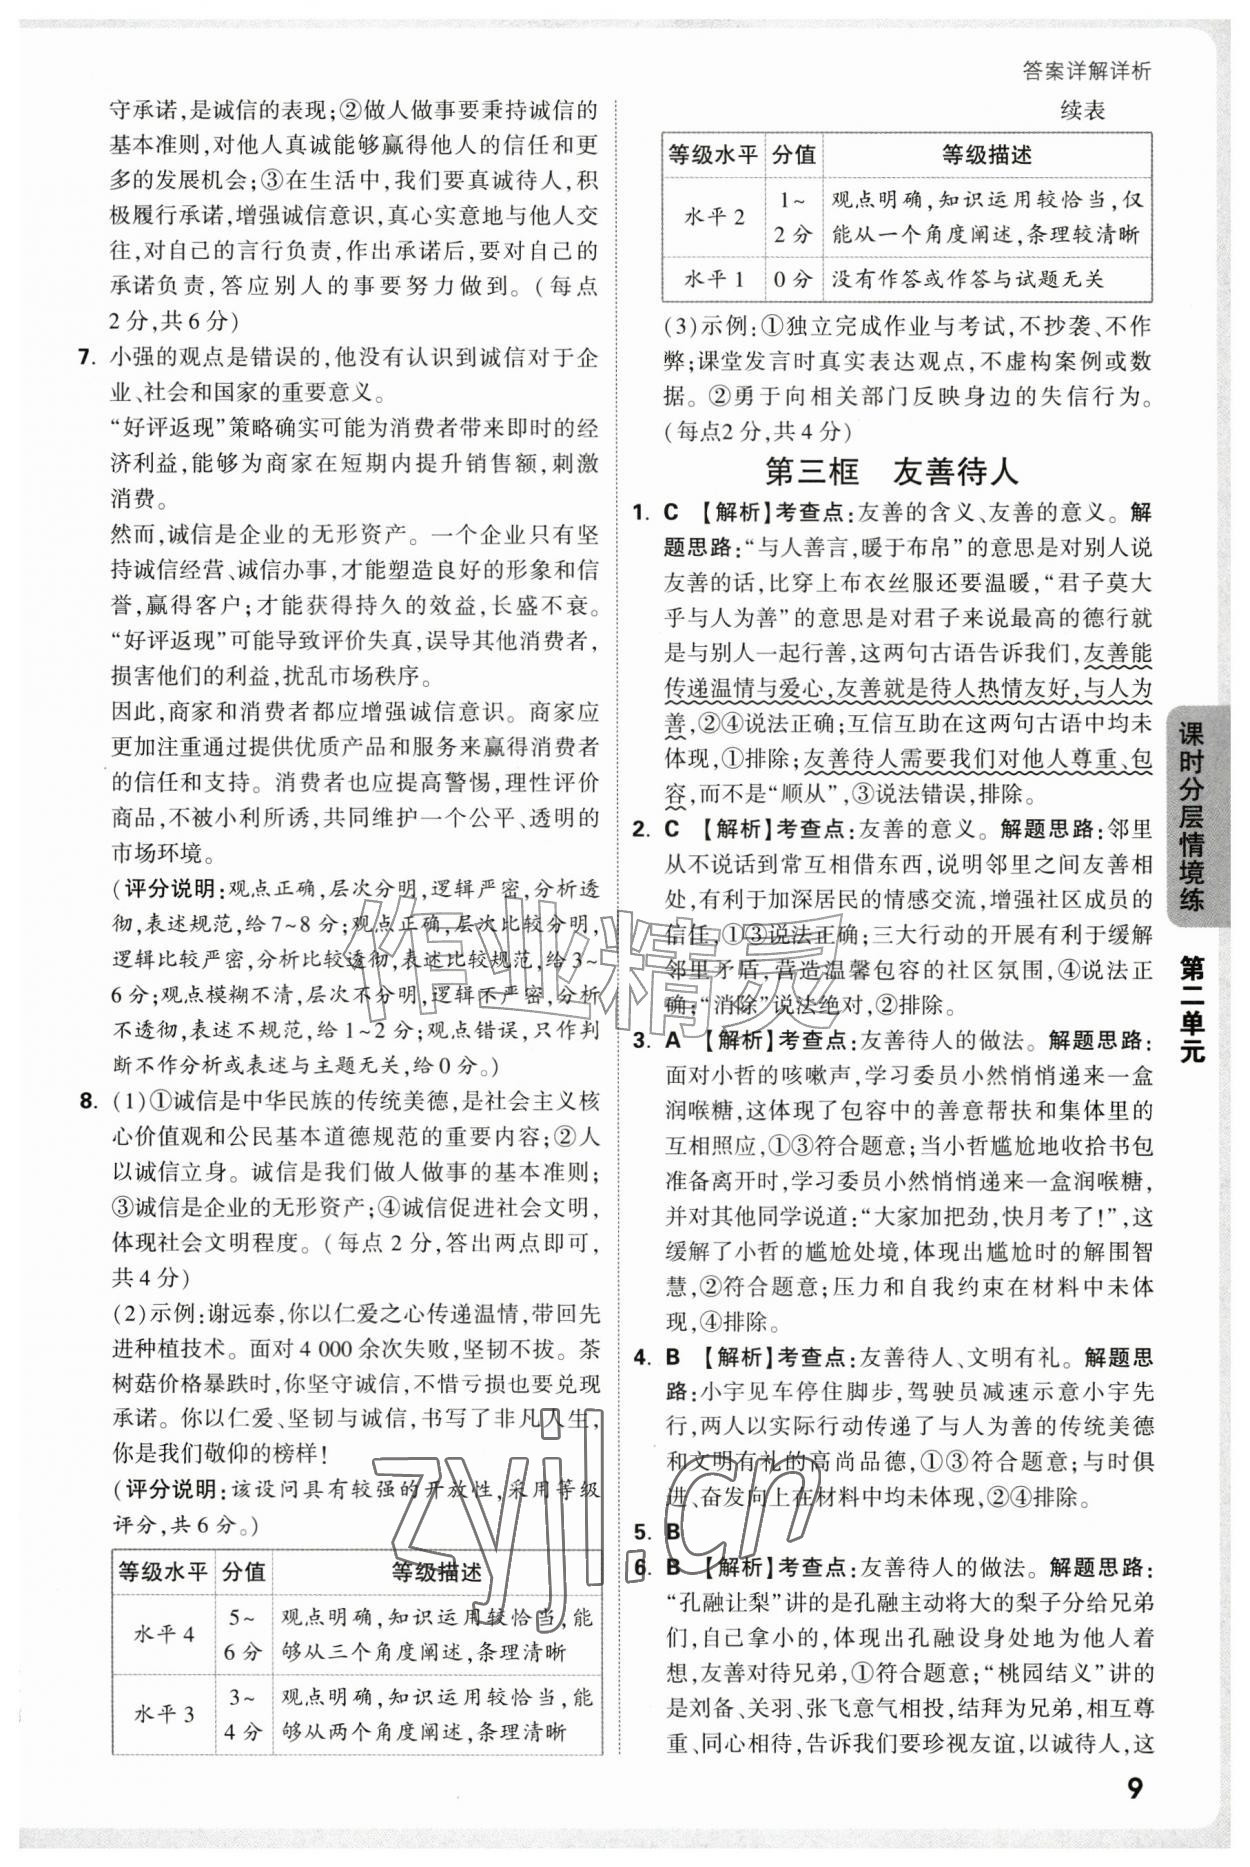 答案详解详析
守承诺,是诚信的表现;②做人做事要秉持诚信的
基本准则,对他人真诚能够赢得他人的信任和更
多的发展机会;③在生活中,我们要真诚待人,积
极履行承诺,增强诚信意识,真心实意地与他人交
往,对自己的言行负责,作出承诺后,要对自己的
承诺负责,答应别人的事要努力做到。(每点
2分,共6分)
7. 小强的观点是错误的,他没有认识到诚信对于企
业、社会和国家的重要意义。
“好评返现”策略确实可能为消费者带来即时的经
济利益,能够为商家在短期内提升销售额,刺激
消费。
然而,诚信是企业的无形资产。一个企业只有坚
持诚信经营、诚信办事,才能塑造良好的形象和信
誉,赢得客户;才能获得持久的效益,长盛不衰。
“好评返现”可能导致评价失真,误导其他消费者,
损害他们的利益,扰乱市场秩序。
因此,商家和消费者都应增强诚信意识。商家应
更加注重通过提供优质产品和服务来赢得消费者
的信任和支持。消费者也应提高警惕,理性评价
商品,不被小利所诱,共同维护一个公平、透明的
市场环境。
(评分说明:观点正确,层次分明,逻辑严密,分析透
彻,表述规范,给7~8分;观点正确,层次比较分明,
逻辑比较严密,分析比较透彻,表述比较规范,给3~
6分;观点模糊不清,层次不分明,逻辑不严密,分析
不透彻,表述不规范,给1~2分;观点错误,只作判
断不作分析或表述与主题无关,给0分。)
8. (1)①诚信是中华民族的传统美德,是社会主义核
心价值观和公民基本道德规范的重要内容;②人
以诚信立身。诚信是我们做人做事的基本准则;
③诚信是企业的无形资产;④诚信促进社会文明,
体现社会文明程度。(每点2分,答出两点即可,
共4分)
(2)示例:谢远泰,你以仁爱之心传递温情,带回先
进种植技术。面对4 000余次失败,坚韧不拔。茶
树菇价格暴跌时,你坚守诚信,不惜亏损也要兑现
承诺。你以仁爱、坚韧与诚信,书写了非凡人生,
你是我们敬仰的榜样!
(评分说明:该设问具有较强的开放性,采用等级
评分,共6分。)
等级水平 分值 等级描述
水平4 5~6分 观点明确,知识运用较恰当,能
够从三个角度阐述,条理清晰
水平3 3~4分 观点明确,知识运用较恰当,能
够从两个角度阐述,条理清晰
续表
等级水平 分值 等级描述
水平2 1~2分 观点明确,知识运用较恰当,仅
能从一个角度阐述,条理较清晰
水平1 0分 没有作答或作答与试题无关
(3)示例:①独立完成作业与考试,不抄袭、不作
弊;课堂发言时真实表达观点,不虚构案例或数
据。②勇于向相关部门反映身边的失信行为。
(每点2分,共4分)
第三框 友善待人
1. C 【解析】考查点:友善的含义、友善的意义。解
题思路:“与人善言,暖于布帛”的意思是对别人说
友善的话,比穿上布衣丝服还要温暖,“君子莫大
乎与人为善”的意思是对君子来说最高的德行就
是与别人一起行善,这两句古语告诉我们,友善能
传递温情与爱心,友善就是待人热情友好,与人为
善,②④说法正确;互信互助在这两句古语中均未
体现,①排除;友善待人需要我们对他人尊重、包
容,而不是“顺从”,③说法错误,排除。
2. C 【解析】考查点:友善的意义。解题思路:邻里
从不说话到常互相借东西,说明邻里之间友善相
处,有利于加深居民的情感交流,增强社区成员的
信任,①③说法正确;三大行动的开展有利于缓解
邻里矛盾,营造温馨包容的社区氛围,④说法正
确;“消除”说法绝对,②排除。
3. A 【解析】考查点:友善待人的做法。解题思路:
面对小哲的咳嗽声,学习委员小然悄悄递来一盒
润喉糖,这体现了包容中的善意帮扶和集体里的
互相照应,①③符合题意;当小哲尴尬地收拾书包
准备离开时,学习委员小然悄悄递来一盒润喉糖,
并对其他同学说道:“大家加把劲,快月考了!”,这
缓解了小哲的尴尬处境,体现出尴尬时的解围智
慧,②符合题意;压力和自我约束在材料中未体
现,④排除。
4. B 【解析】考查点:友善待人、文明有礼。解题思
路:小宇见车停住脚步,驾驶员减速示意小宇先
行,两人以实际行动传递了与人为善的传统美德
和文明有礼的高尚品德,①③符合题意;与时俱
进、奋发向上在材料中均未体现,②④排除。
5. B
6. B 【解析】考查点:友善待人的做法。解题思路:
“孔融让梨”讲的是孔融主动将大的梨子分给兄弟
们,自己拿小的,体现出孔融设身处地为他人着
想,友善对待兄弟,①符合题意;“桃园结义”讲的
是刘备、关羽、张飞意气相投,结拜为兄弟,相互尊
重、同心相待,告诉我们要珍视友谊,以诚待人,这
课时分层情境练
第二单元
9
作业精灵
zyjl.cn